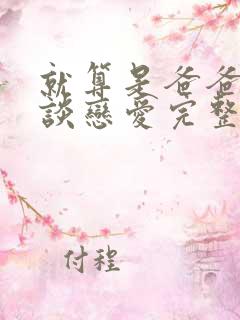 就算是爸爸
談戀愛完整
付程